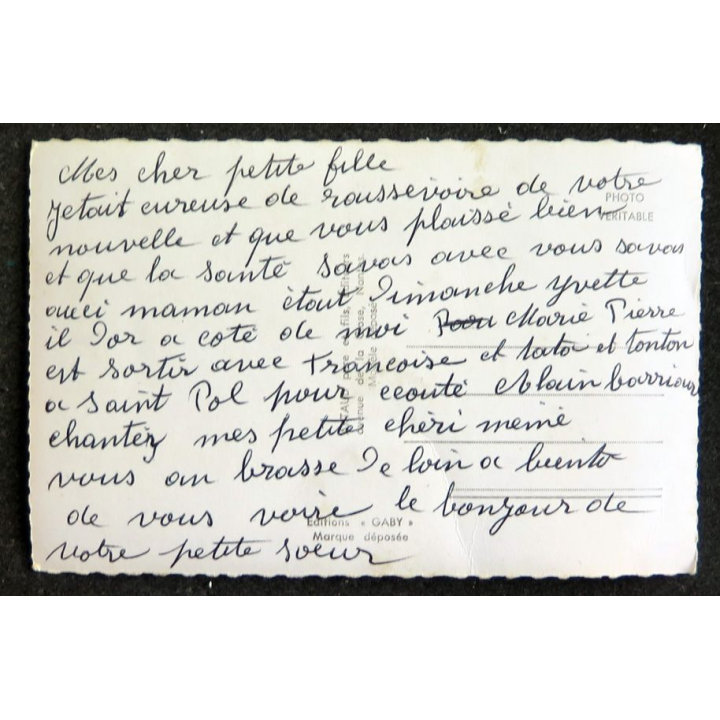 Mes cher petite fille
jetait eureuse de raussevoire de votre
nouvelle et que vous plaissé bien
et que la santé savas avec vous savas
auci maman étaut Dimanche yvette
il Dor a coté de moi Marie Pierre
est sortir avec Francoise et tata et tonton
a saint Pol pour ecouté Alain barriour
chantéz mes petite chéri mémé
vous an brasse De loin a biento
de vous voire le bonjour de
votre petite soeur
PHOTO
VERITABLE
Editions « GABY »
Marque déposée